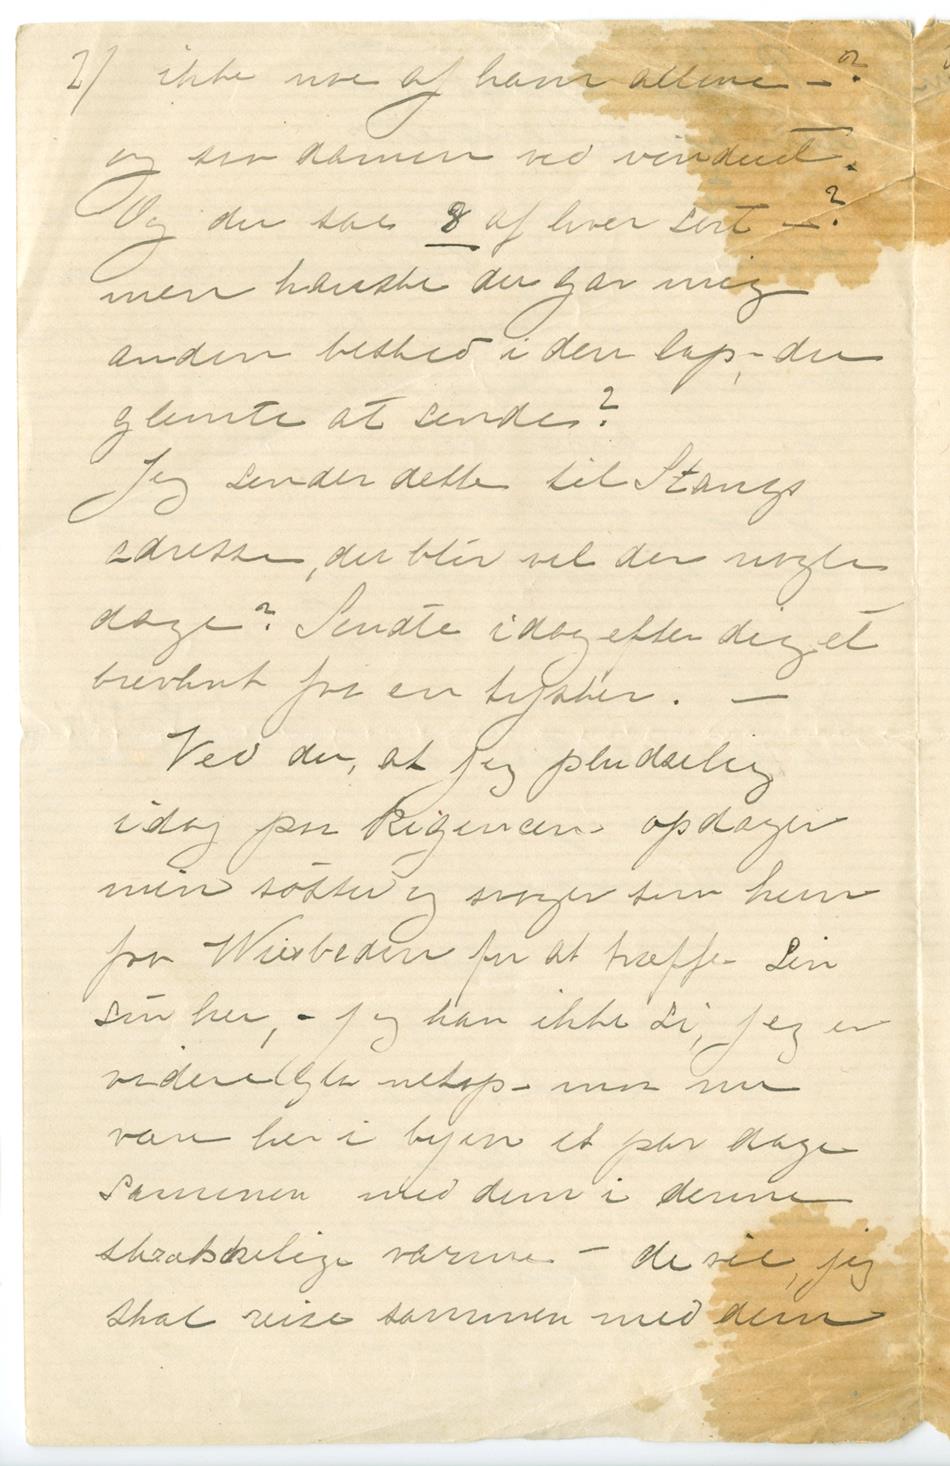 2/ ikke noe af ham allene –?
og saa damen ved vinduet.
Og der saa 8 af hver sort –?
men kanske du gav mig
anden besked i den lap, du
glemte at sende?
Jeg sender dette til Stangs
adresse, du blir vel der nogle
dage? Sendte idag efter dig et
brevkort fra en tysker. –
Ved du, at jeg pludselig
idag paa Rigencen opdager
min søster og svoger som kom
fra Wiesbaden for at træffe sin
søn her, – jeg kan ikke si, jeg er
videre gla netop – maa nu
være her i byen et par dage
sammen med dem i denne
skrækkelige varme – de vil, jeg
skal reise sammen med dem